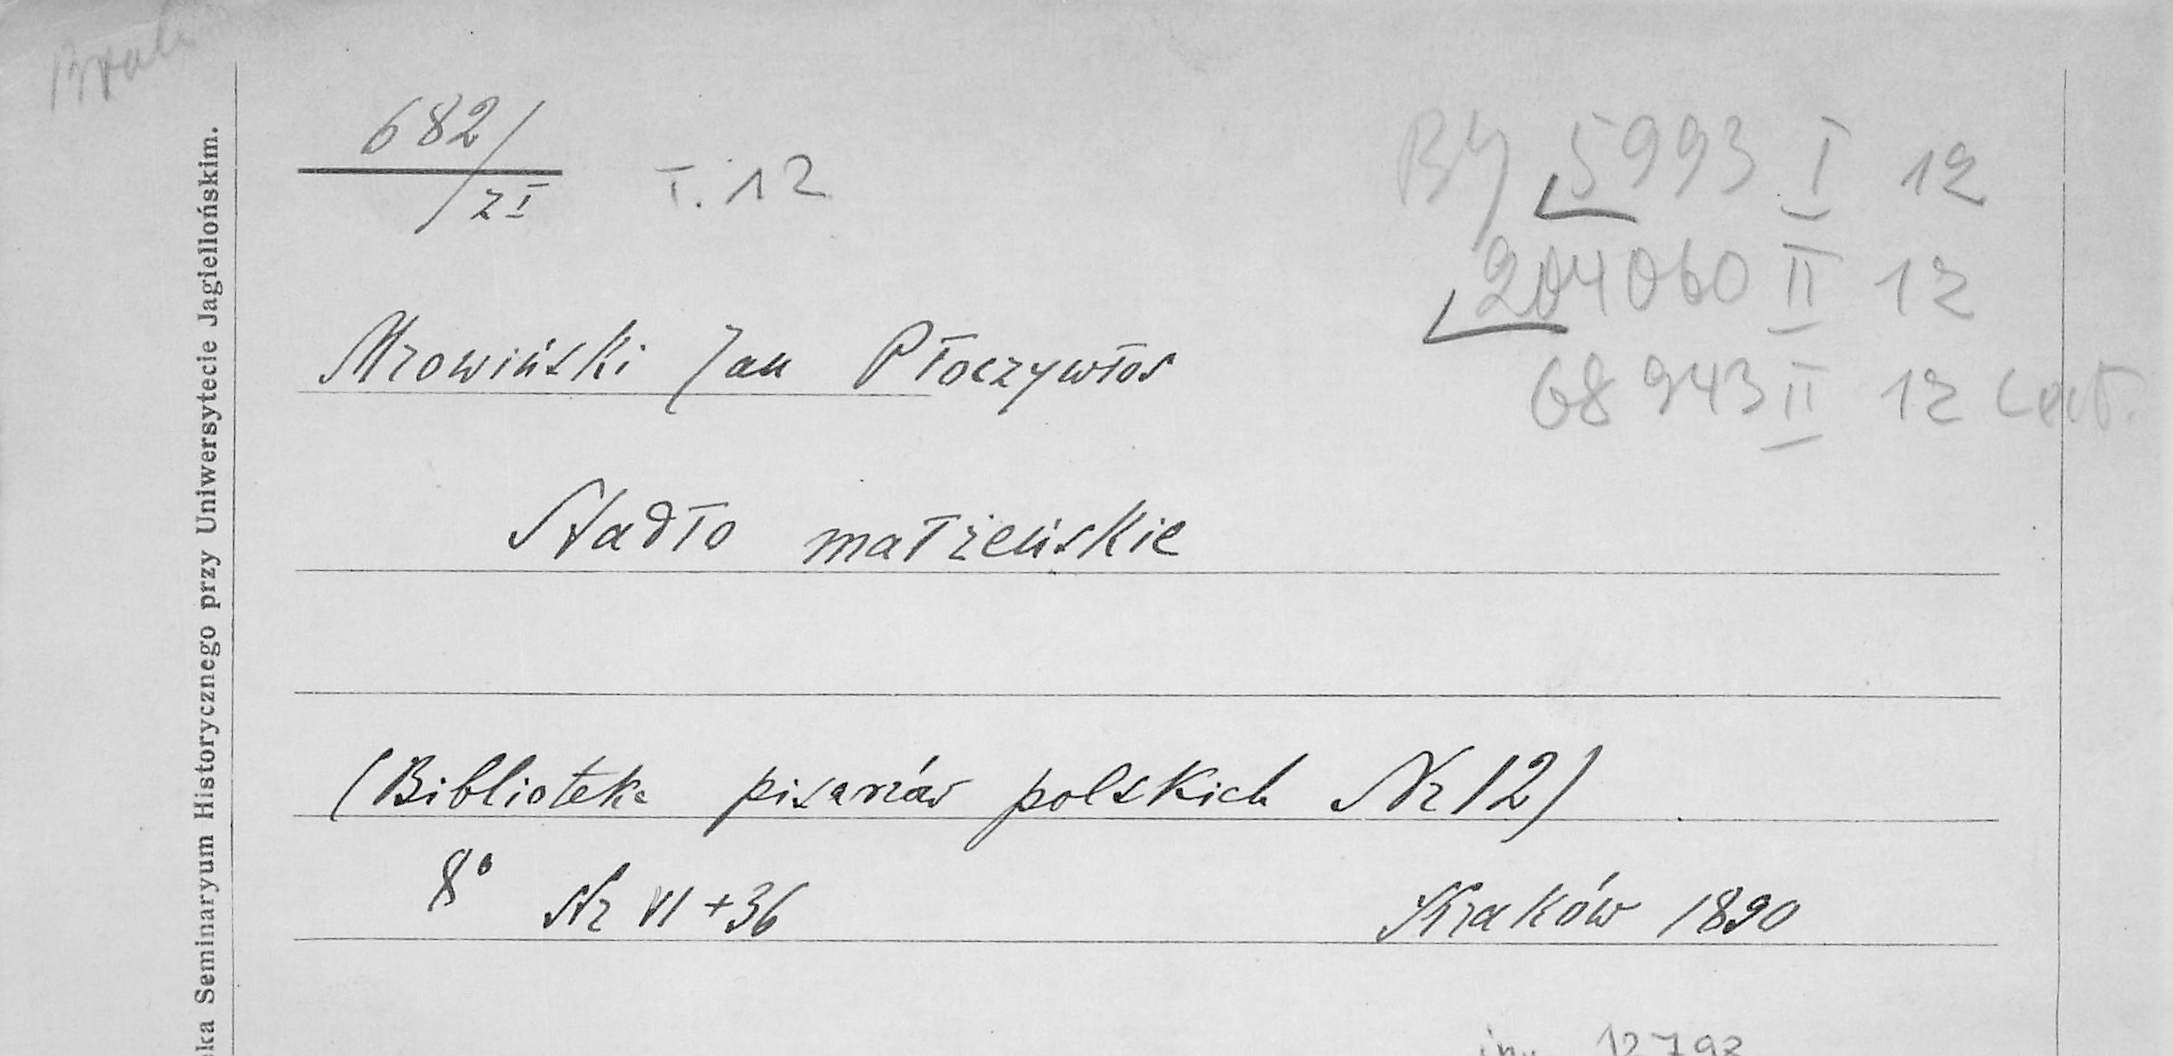 682/
z I T. 12
BJ 5993 I 12
204060 II 12
68943 II 12
Mrowiński Jan Płoczywłos
Stadło małżeńskie
(Biblioteka pisarzów polskich Nr 12)
8° Nr VI + 36 Kraków 1890
12798
ka Seminaryum Historycznego przy Uniwersytecie Jagiellońskim.